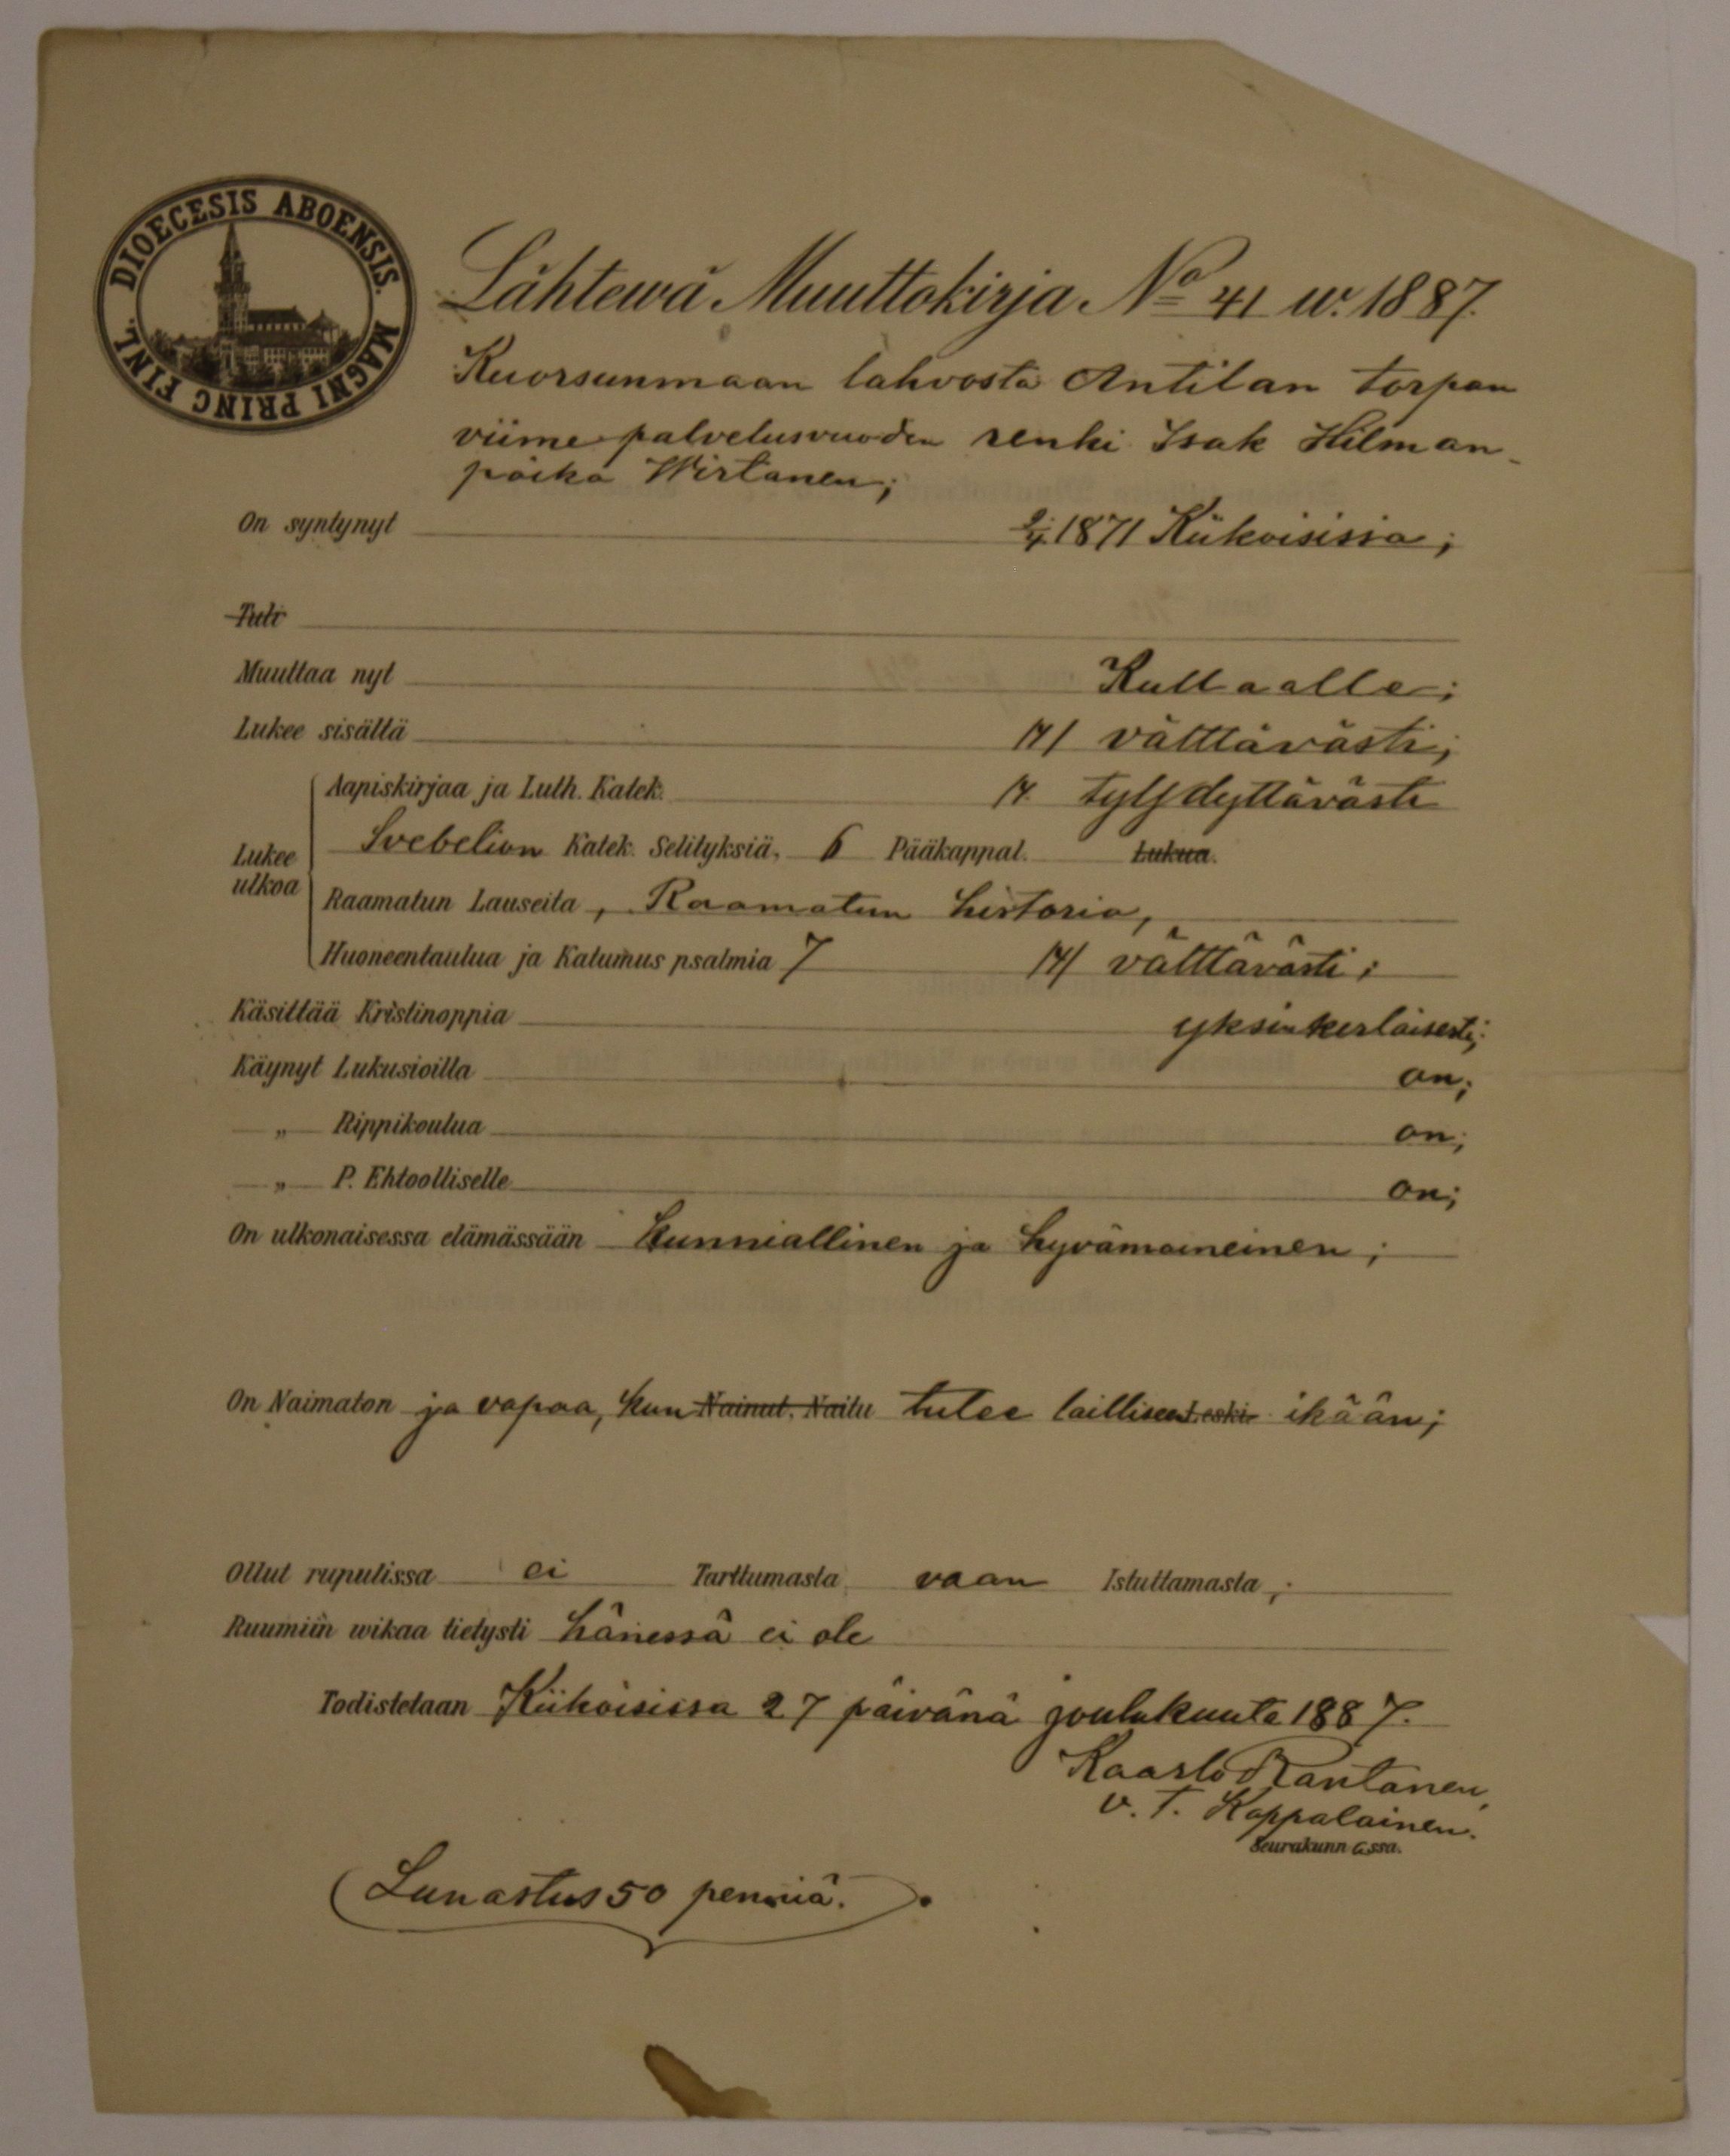 DIOECESIS ABOENSIS. MAGNI PRINC FINL.
Lähtewä Muuttokirja No 41 w. 1887.
Kuorsunmaan lahvosta Antilan torpan
viime palvelusvuoden renki Isak Hilman-
poika Wirtanen;
On syntynyt 2/4 1871 Kiikoisissa;
Tuli
Muuttaa nyt Kullaalle;
Lukee sisältä välttävästi;
Aapiskirjaa ja Luth. Katek. tyydyttävästi
Lukee ulkoa Svebelion Katek. Selityksiä, 6 Pääkappal. Lukua.
Raamatun Lauseita, Raamatun historia,
Huoneentaulua ja Katumus psalmia 7 välttävästi;
Käsittää Kristinoppia yksinkertaisesti;
Käynyt Lukusioilla on;
—„— Rippikoulua on;
—„— P. Ehtoolliselle on;
On ulkonaisessa elämässään kunniallinen ja hyvämaineinen;
On Naimaton ja vapaa, kun Nainut, Naitu tulee lailliseen Leski ikään;
Ollut rupulissa ei Tarttumasta vaan Istuttamasta;
Ruumiin wikaa tietysti hänessä ei ole
Todistetaan Kiikoisissa 27 päivänä joulukuuta 1887.
Kaarlo Rantanen,
v. t. Kappalainen.
Seurakunnassa.
Lunastus 50 penniä.